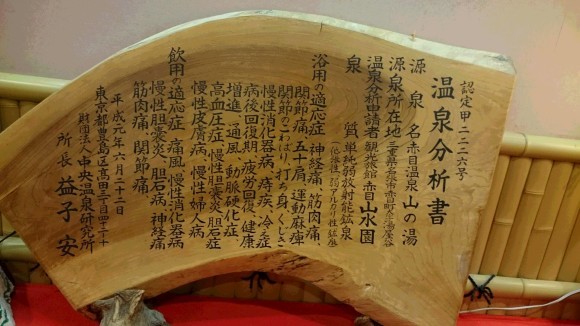 認定甲二二二六号
温泉分析書
源泉名 赤目温泉 山の湯
源泉所在地 三重県名張市赤目町
温泉分析申請者 観光旅館 赤目山水園
泉質 単純弱放射能鉱泉
浴用の適応症 神経痛、筋肉痛、
関節痛、五十肩、運動麻痺、
関節のこわばり、打ち身、くじき、
慢性消化器病、痔疾、冷え症、
病後回復期、疲労回復、健康
増進、痛風、動脈硬化症、
高血圧症、慢性胆嚢炎、胆石症、
慢性皮膚病、慢性婦人病
飲用の適応症 痛風、慢性消化器病、
慢性胆嚢炎、胆石病、神経痛
筋肉痛、関節痛、
平成元年六月二十二日
東京都豊島区高田三丁目四二ノ十
財団法人中央温泉研究所
所長 益子 安